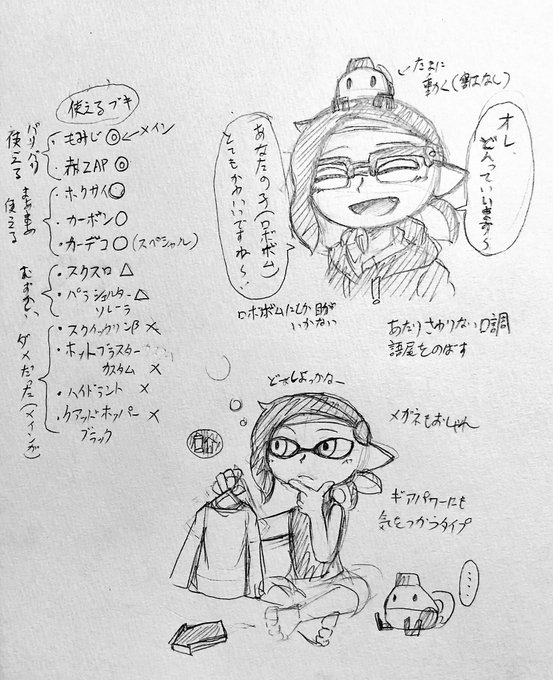 使えるブキ
バリバリ
使える
もみじ ◎ ←メイン
赤ZAP ◎
まあまあ
使える
ホクサイ ○
カーボン ○
カーデコ ○ (スペシャル)
むずかしい
・スクスロ △
・パラシェルター △
ソレーラ
ダメだった(メインが)
・スクイックリンβ ×
・ホットブラスター
カスタム ×
・ハイドラント ×
・クアッドホッパー ×
ブラック
たまに
動く(害はなし)
オレ
あなたの子(ロボボム)
とてもかわいいですね〜!
ロボボムにしか目が
いかない
あたりさわりない口調
語尾をのばす
どれしよっかなー
メガネもおしゃれ
ギアパワーにも
気をつかうタイプ